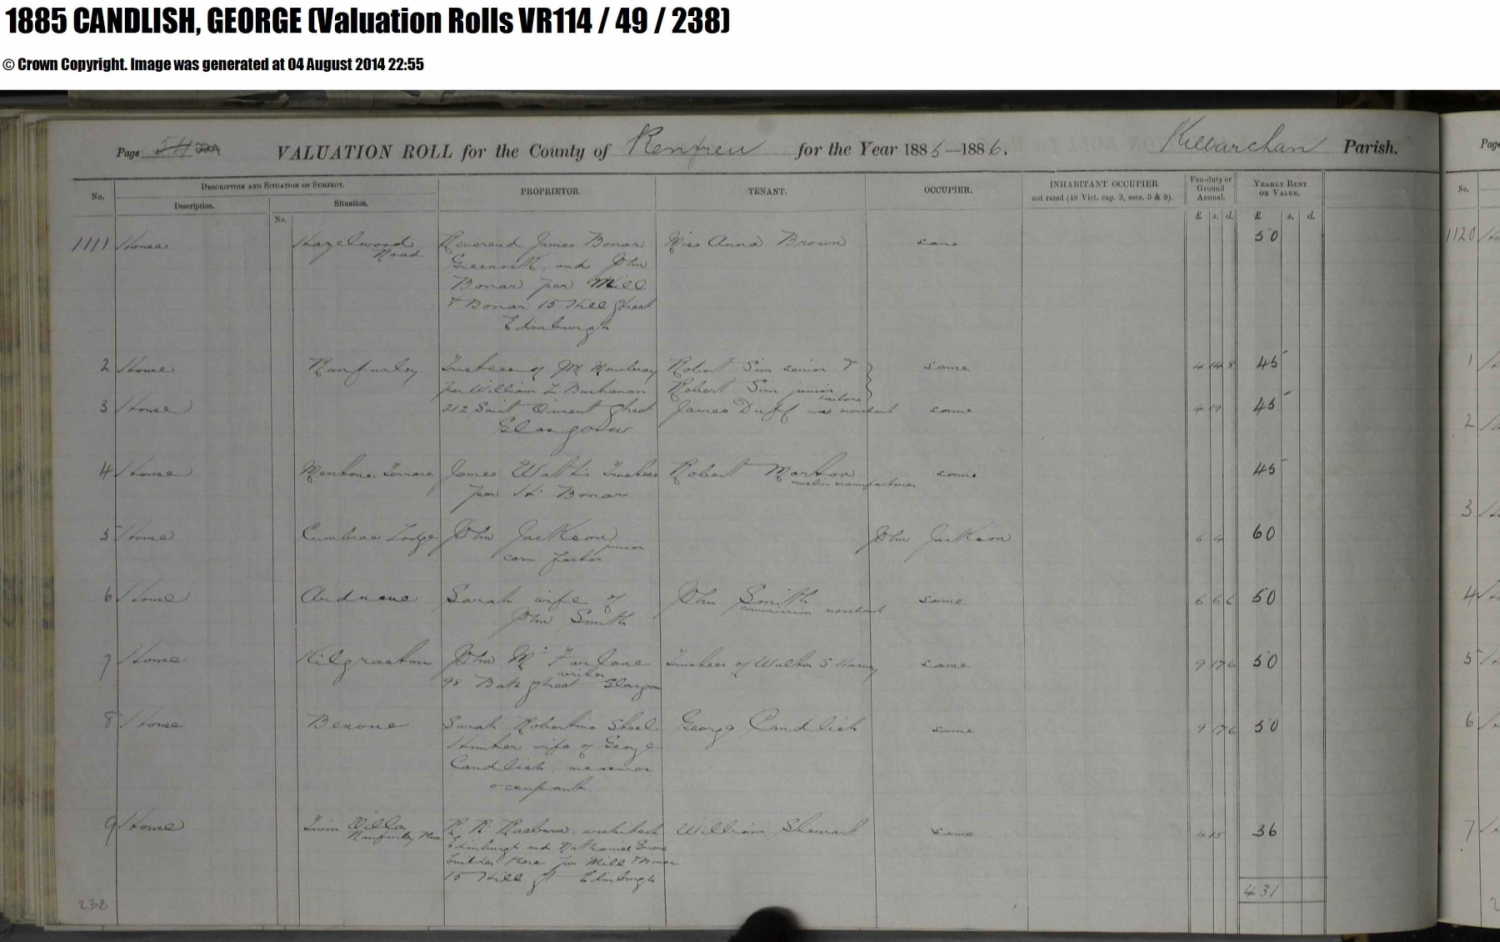 1885 CANDLISH, GEORGE (Valuation Rolls VR114 / 49 / 238)
© Crown Copyright. Image was generated at 04 August 2014 22:55
Page 22A VALUATION ROLL for the County of Renfrew for the Year 1885—1886. Kilbarchan Parish. Page
No. DESCRIPTION AND SITUATION OF SUBJECT. PROPRIETOR. TENANT. OCCUPIER. INHABITANT OCCUPIER Feu-duty or Ground Annual. YEARLY RENT OR VALUE. No.
not rated (48 Vict. cap. 3, secs. 3 & 9).
Description. Situation.
No. £ s. d. £ s. d.
1111 House Hazelwood Reverend James Bonar Miss Anna Brown same 50 1120
Road Greenock and John
Bonar per Mill
& Bonar 15 Hill Street
Edinburgh
2 House Ranfurly Trustees of Robert Sim senior & same 4 14 8 45 1
per William Buchanan Robert Sim junior
3 House 212 Saint Vincent Street James Duff merchant same 4 19 45
Glasgow 2
4 House Mentone Terrace James Watt's Trustees Robert Morton same 45
per Bonar muslin manufacturer
3
5 House Cumbrae Lodge John Jackson junior John Jackson 6 4 60
corn factor
6 House Sarah wife of John Smith same 6 6 6 50 4
John Smith commission merchant
7 House Kilgraston John McFarlane Trustees of Walter S same 9 17 6 50 5
writer
98 Bath Street Glasgow
8 House Sarah Robertina George Candlish same 9 17 6 50 6
wife of George
Candlish
occupant
9 House Twin Villa architect William Stewart same 4 15 36 7
Ranfurly Place Edinburgh and Nathaniel
builder there per Mill & Bonar
15 Hill St Edinburgh
431
238